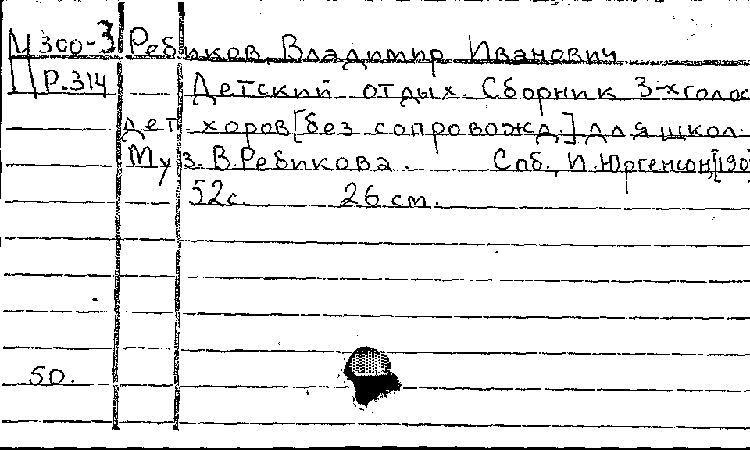 М 300-3 Ребиков, Владимир Иванович
Р.314 Детский отдых. Сборник 3-хголос
дет хоров [без сопровожд.] для школ.
Муз. В. Ребикова. Спб., И. Юргенсон, [190
52 с. 26 см.
50.